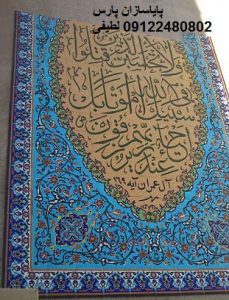 پایاسازان پارس
09122480802 لطیفی
ولا تحسبن الذین قتلوا
فی سبیل الله امواتا بل
احیاء عند ربهم یرزقون
آل عمران آیه ۱۶۹